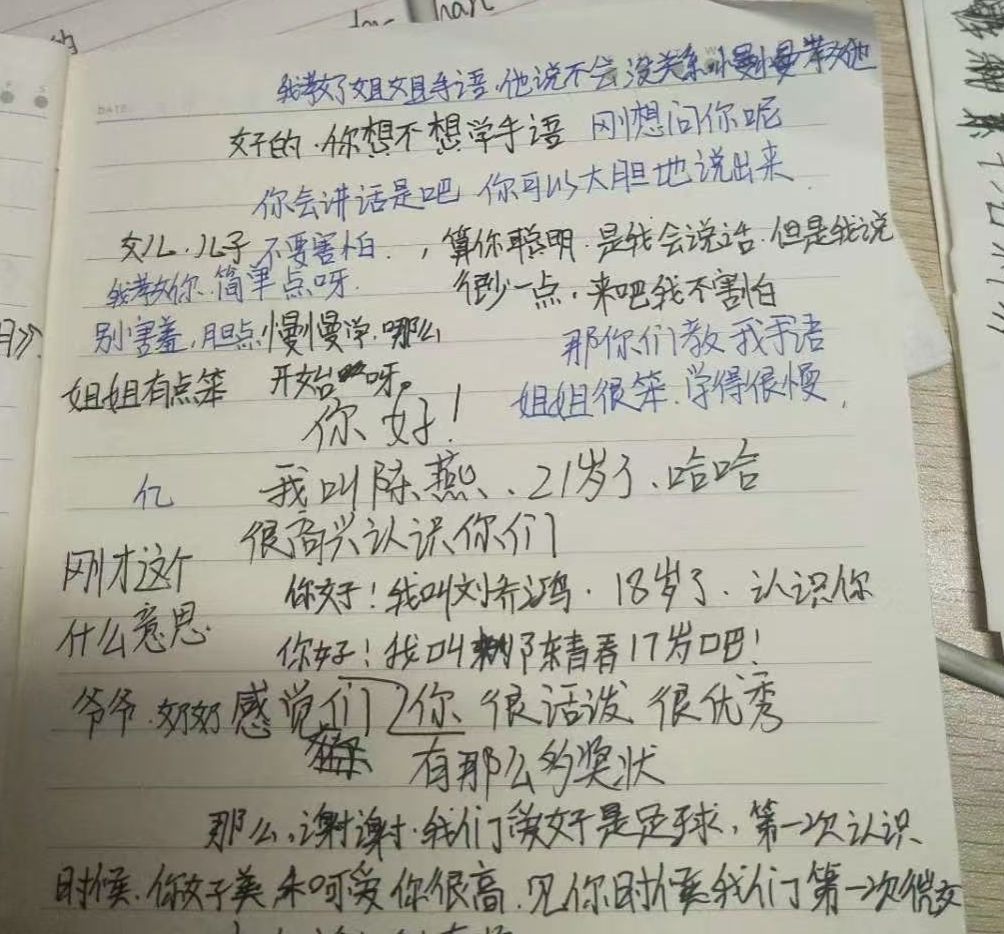 我教了姐姐手语.他说不会没关系慢慢教他
好的.你想不想学手语 刚想问你呢
你会讲话是吧 你可以大胆地说出来
女儿.儿子不要害怕.,算你聪明.是我会说话.但是我说
我教你.简单点呀. 很少一点,来吧我不害怕
别害羞,胆点慢慢学.哪么 那你们教我手语
姐姐有点笨 开始呀。 姐姐很笨.学得很慢,
你好!
亿 我叫陈燕、21岁了、哈哈
很高兴认识你们
刚才这个 你好!我叫刘希鸿.18岁了.认识你
什么意思. 你好!我叫陈青春17岁吧!
爷爷.奶奶感觉们你 很活泼 很优秀
有那么多奖状
那么,谢谢.我们做好是足球,第一次认识
时候.你好美和可爱你很高.见你时候我们第一次